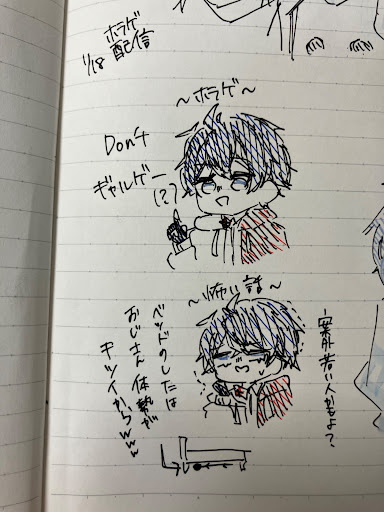 ホラゲ
配信
1/18
〜ホラゲ〜
Don't
ギャルゲー
(?)
〜怖い話〜
ベッドのしたは
おじさん 体勢が
キツイからwww
案外 若い人かもよ?